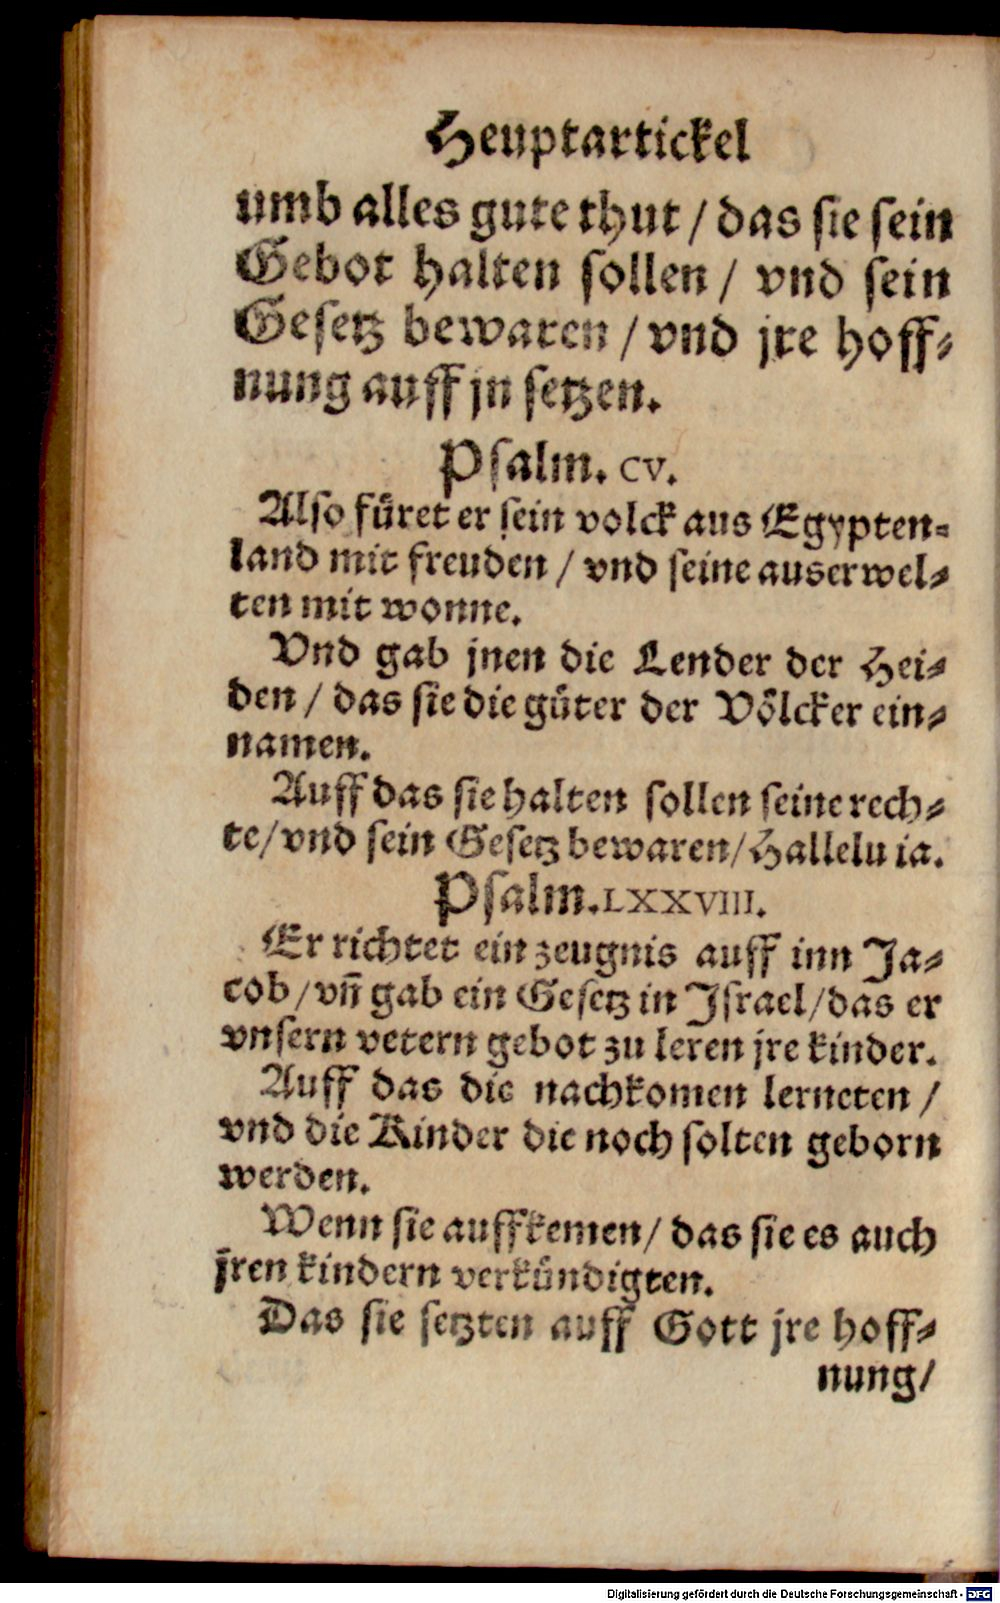 Heuptartickel
umb alles gute thut / das sie sein
Gebot halten sollen / vnd sein
Gesetz bewaren / vnd jre hoff⸗
nung auff jn setzen.
Psalm. CV.
Also füret er sein volck aus Egypten⸗
land mit freuden / vnd seine auserwel⸗
ten mit wonne.
Vnd gab jnen die Lender der Hei⸗
den / das sie die güter der Völcker ein⸗
namen.
Auff das sie halten sollen seine rech⸗
te / vnd sein Gesetz bewaren / Hallelu ia.
Psalm. LXXVIII.
Er richtet ein zeugnis auff inn Ja⸗
cob / vñ gab ein Gesetz in Israel / das er
vnsern vetern gebot zu leren jre kinder.
Auff das die nachkomen lerneten /
vnd die Kinder die noch solten geborn
werden.
Wenn sie auffkemen / das sie es auch
jren kindern verkündigten.
Das sie setzten auff Gott jre hoff⸗
nung /
Digitalisierung gefördert durch die Deutsche Forschungsgemeinschaft - DFG